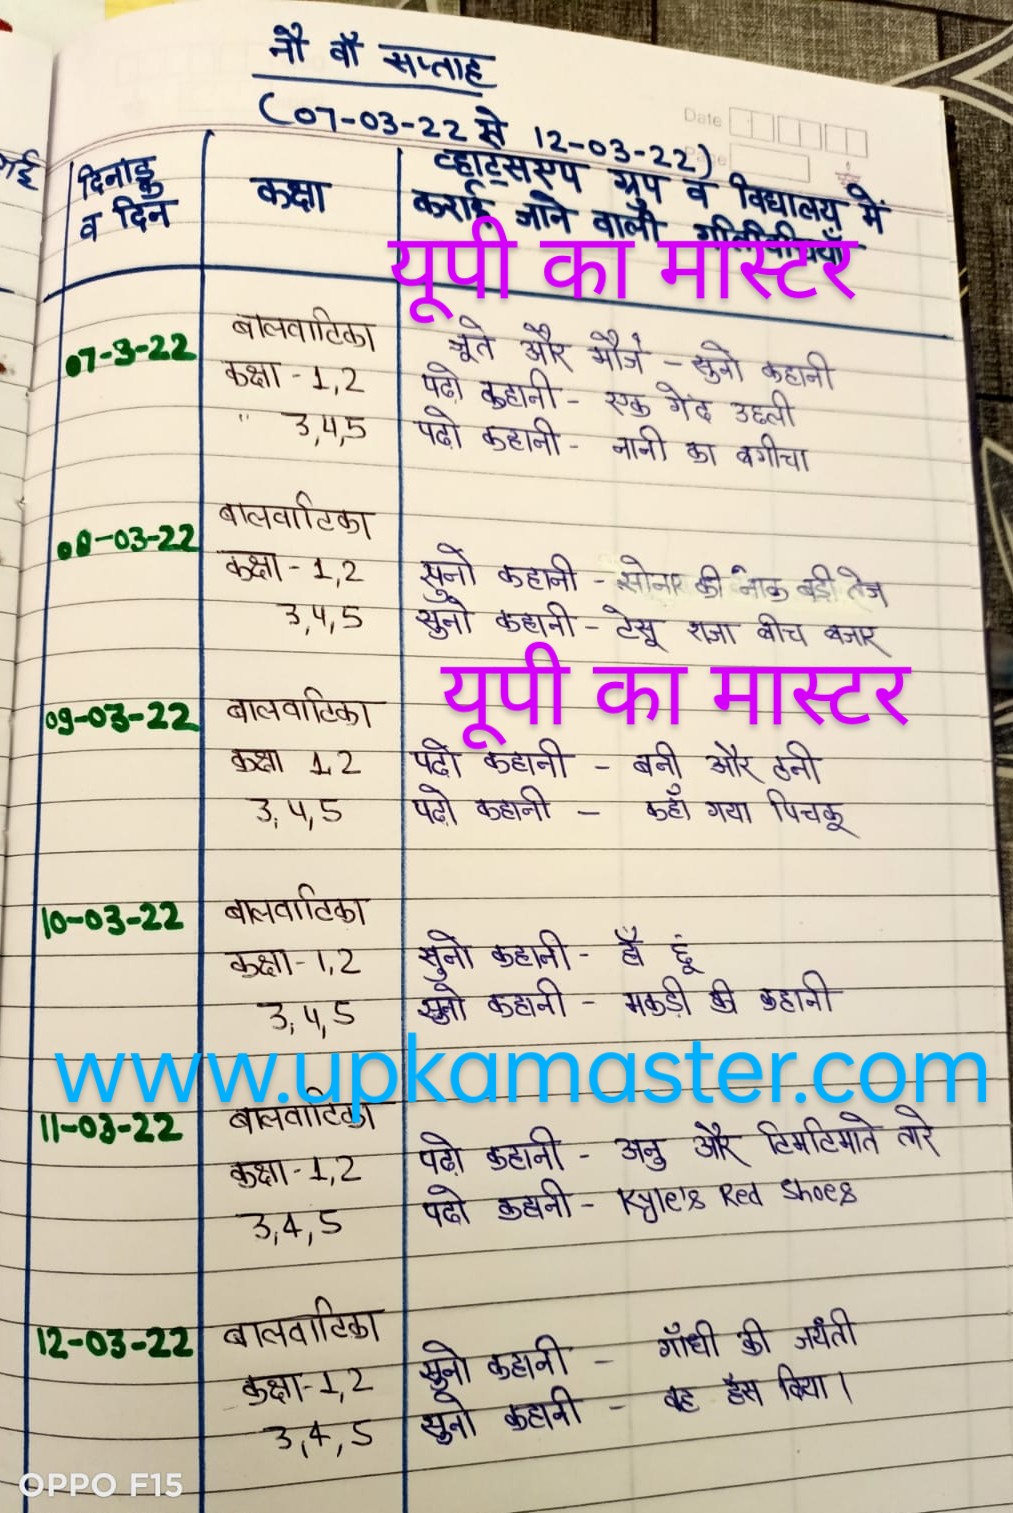 नौ वाँ सप्ताह
(07-03-22 से 12-03-22)
Date
दिनाङ्क व दिन
कक्षा
व्हाट्सएप ग्रुप व विद्यालय में
कराई जाने वाली गतिविधियाँ
यूपी का मास्टर
07-3-22 बालवाटिका जूते और मौजे - सुनो कहानी
कक्षा - 1,2 पढो कहानी - एक गेंद उछली
" 3,4,5 पढो कहानी - नानी का बगीचा
08-03-22 बालवाटिका
कक्षा - 1,2 सुनो कहानी - सोनार की नाक बड़ी तेज
3,4,5 सुनो कहानी - टेसू राजा बीच बजार
यूपी का मास्टर
09-03-22 बालवाटिका
कक्षा 1,2 पढो कहानी - बनी और ठनी
3,4,5 पढो कहानी - कहाँ गया पिचकू
10-03-22 बालवाटिका
कक्षा - 1,2 सुनो कहानी -
3,4,5 सुनो कहानी - मकड़ी की कहानी
www.upkamaster.com
11-03-22 बालवाटिका
कक्षा - 1,2 पढो कहानी - अनु और टिमटिमाते तारे
3,4,5 पढो कहानी - Kyle's Red Shoes
12-03-22 बालवाटिका
कक्षा - 1,2 सुनो कहानी - गाँधी की जयंती
3,4,5 सुनो कहानी - वह हँस दिया।
OPPO F15